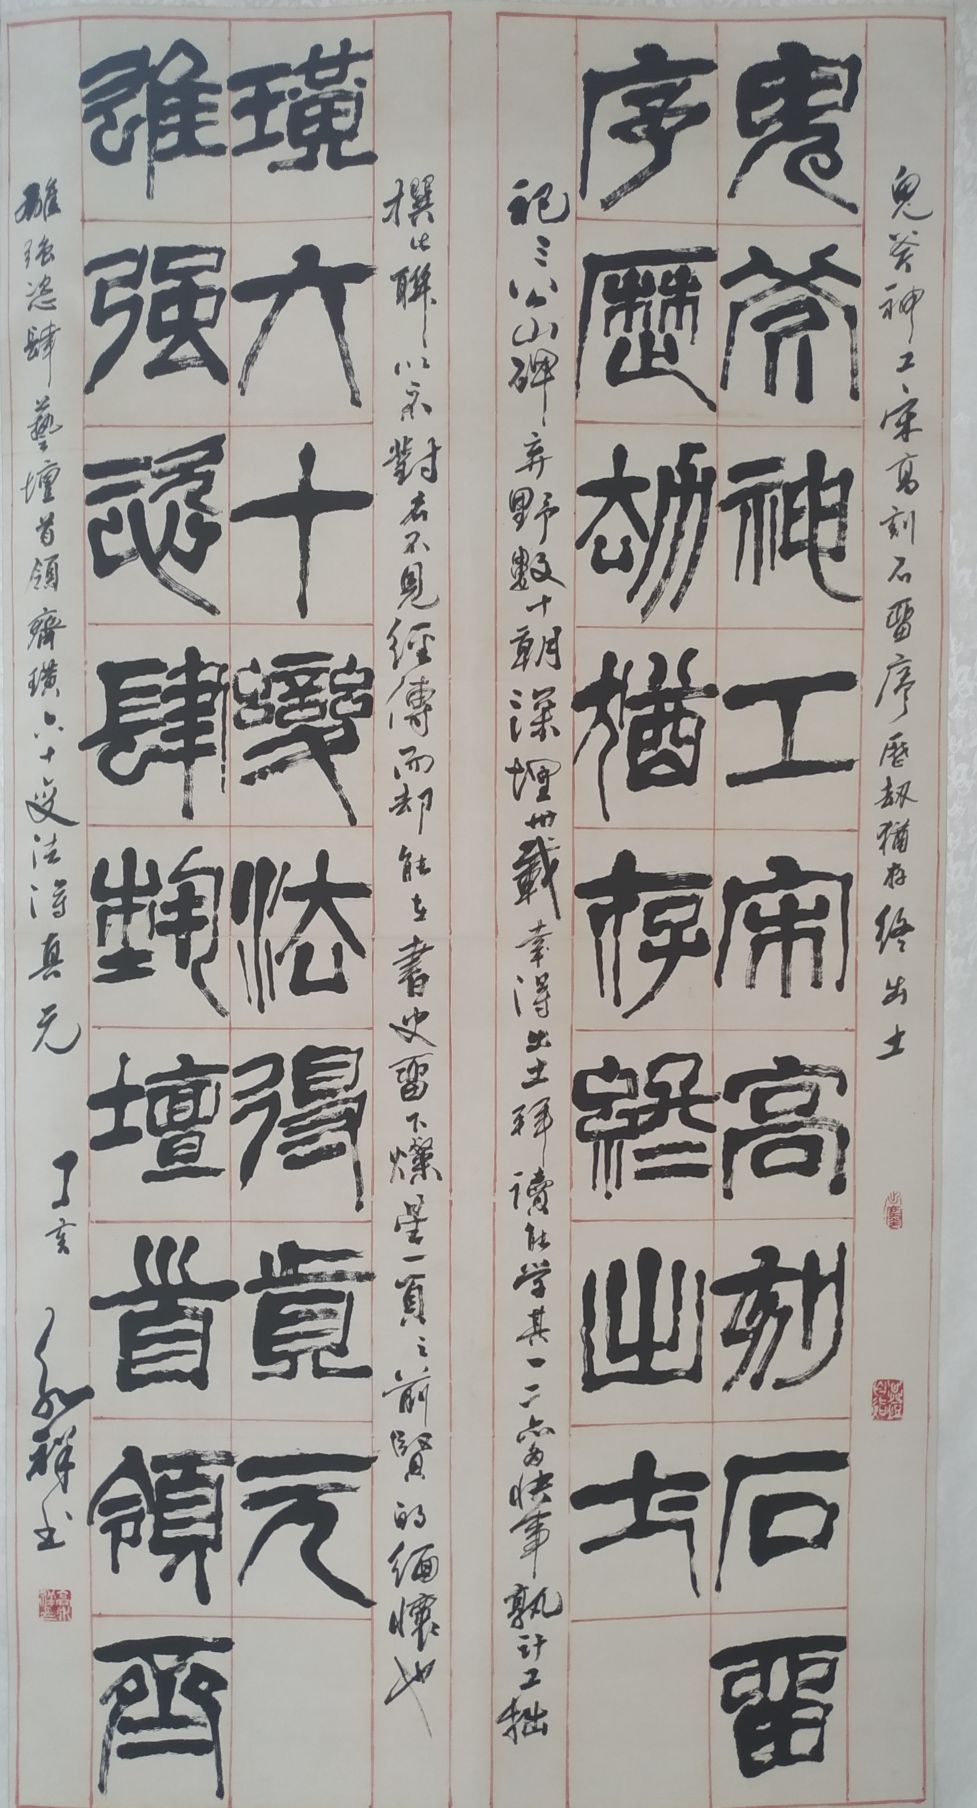 鬼斧神工宋高刻石畱序歷劫猶存終出土
鬼斧神工宋高刻石畱
序歷劫猶存終出土
祀三公山碑弃野數十朝深埋卅載幸得出土拜讀能学其一二亦為快事孰計工拙
撰此聯以求對名不見經傳而却能在書史畱下燦星一頁之前賢的緬懷也
雄强恣肆藝壇首領齊
璜六十變法得真元
雄强恣肆藝壇首領齊璜六十变法得真元
丁亥 永祥书